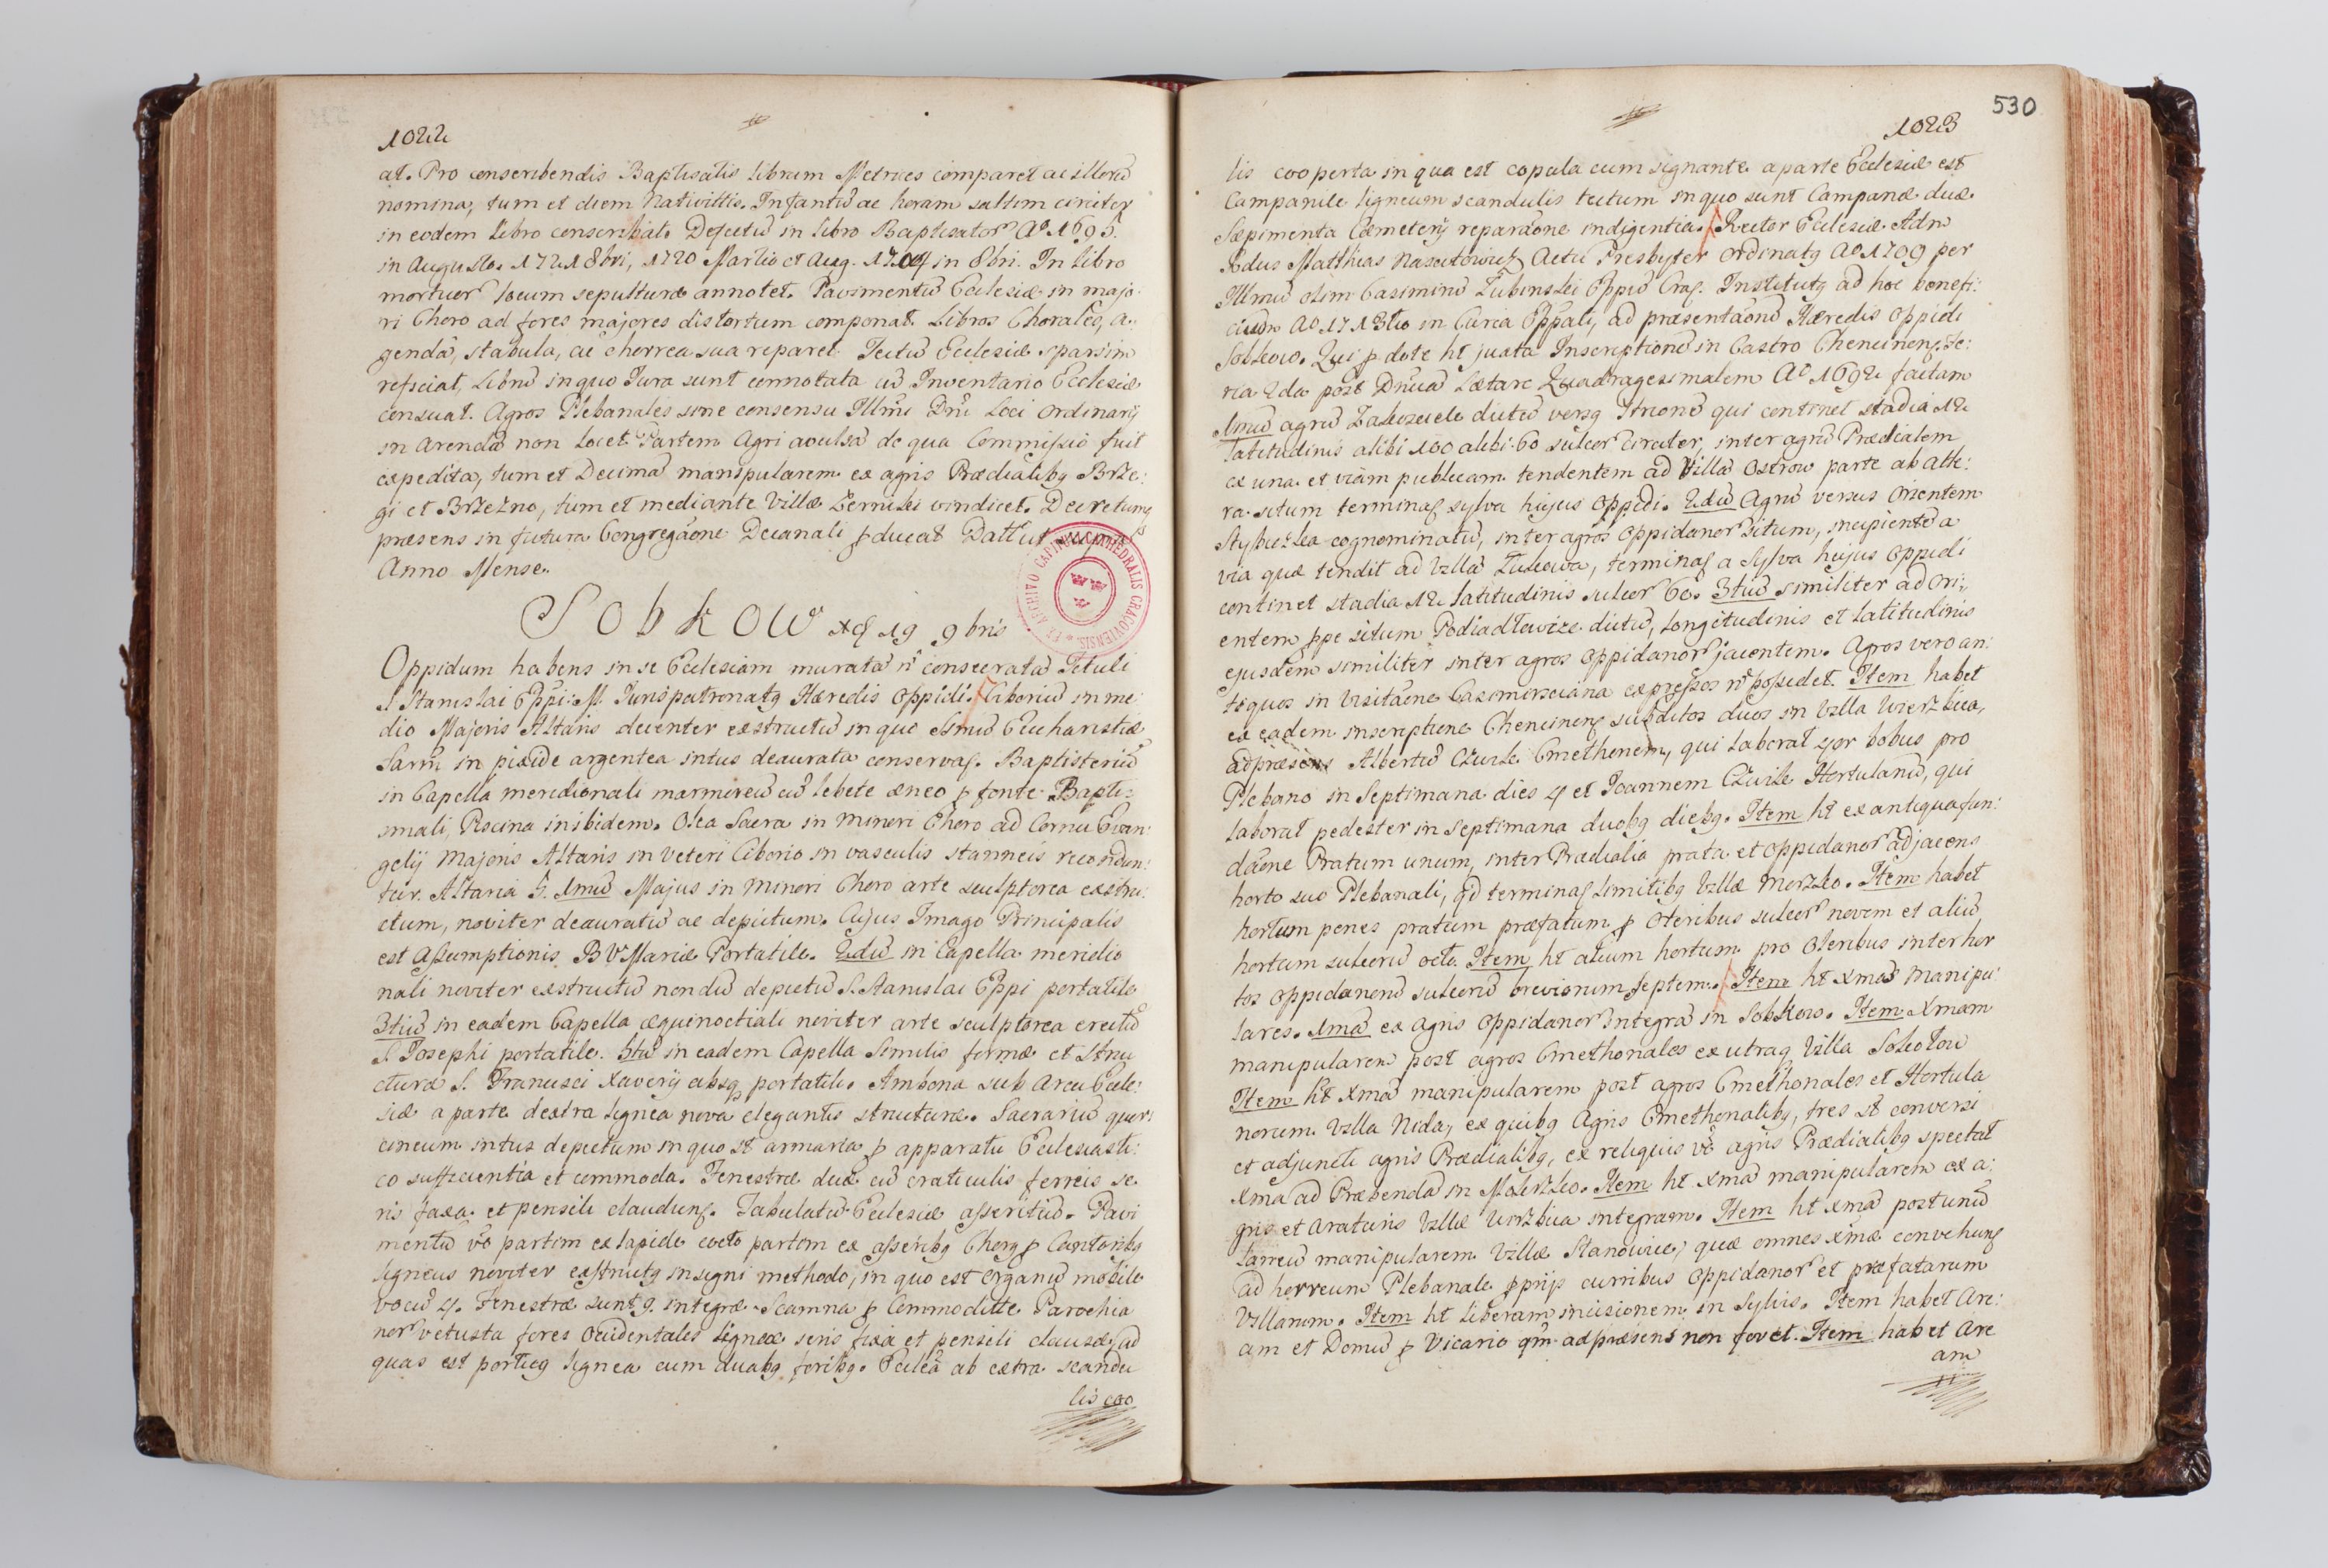 1022
at. Pro conscribendis Baptisatis librum Metrices comparet ac illorū
nomina, tum et diem Nativittis. Infantiū ac horam saltim circiter
in eodem Libro conscribat. Defectū in libro Baptisator A° 1695.
in Augusto. 1721 8bri, 1720 Martio et Aug. in 8bri. In Libro
mortuor locum sepulturæ annotet. Pavimentū Ecclesiæ in majo
ri Choro ad fores majores distortum componat. Libros Chorales, a
genda, stabula, ac horrea sua reparet. Tectū Ecclesiæ sparsim
reficiat, Librū in quo Jura sunt connotata cū Inventario Ecclesiæ
consuat. Agros Plebanales sine consensu Illmi Dni Loci Ordinarij
in arendā non locet. Partem Agri avulsā de qua Commissio fuit
expedita, tum et Decimā manipularem ex agris Prædialibq Brze:
gi et Brzezno, tum et mediante Villæ Zerniki vindicet. Decretumq
præsens in futura Congregaone Decanali pducat Datt ut supra
Anno Mense.
EX ARCHIVO CAPITULI CATHEDRALIS CRACOVIENSIS
SOBKOW 19 9bris
Oppidum habens in se Ecclesiam muratā n consecratā Tituli
S Stanislai Eppi M. Juris patronatq Hæredis Oppidi. Ciboriū in me
dio Majoris Altaris decenter exstructū in quo Ssmū Eucharistiæ
Sacrm in pixide argentea intus deaurata conservaṫ. Baptisteriū
in Capella meridionali marmoreū cū lebete æneo p fonte Bapti:
smali, Piscina inibidem. Olea Sacra in Minori Choro ad Cornu Evan:
gelij Majoris Altaris in veteri Ciborio in vasculis stanneis recondun:
tur. Altaria 5. 1mū Majus in Minori Choro arte sculptorea exstru:
ctum, noviter deauratū ac depictum. Cujus Imago Principalis
est Assumptionis B V Mariæ Portatile. 2dū in Capella meridio
nali noviter exstructū nondū depictū S. Stanislai Eppi portatile
3tiū in eadem Capella æquinoctiali noviter arte sculptorea erectū
S Josephi portatile. in eadem Capella similis formæ et stru
cturæ S. Francisci Xaverij absq portatili. Ambona sub Arcu Eccle:
siæ a parte dextra lignea nova elegantis structuræ. Sacrariū quer:
cineum intus depictum in quo st armaria p apparatu Ecclesiasti:
co sufficientia et commoda. Fenestræ duæ cū craticulis ferreis se
ris fixa et pensili claudunṫ. Tabulatū Ecclesiæ asseritiū. Pavi
mentū vo partim ex lapide cocto partim ex asseribq Chorq p Cantoribq
ligneus noviter exstructq insigni methodo, in quo est organū mobile
vocū 4. Fenestræ sunt 9. integræ. Scamna p Commoditte Parochia
nor vetusta fores Occidentales ligneæ seris fixa et pensili clausæ, ad
quas est porticq lignea cum duabq foribq. Ecclā ab extra scandu
lis coo
530
1023
lis cooperta in qua est copula cum signante a parte Ecclesiæ est
Campanile ligneum scandulis tectum in quo sunt Campanæ duæ
Sæpimenta Cæmeterij reparaone indigentia. Rector Ecclesiæ Adm
Rdus Matthias Nasutowicz Actu Presbyter Ordinatq A° 1709 per
Illmū olim Casimirū Łubinski Eppū Crac. Institutq ad hoc benefi:
cium A° 1713tio in Curia Eppali, ad præsentaonē Hæredis Oppidi
Sobkow. Qui p dote ht juxta Inscriptionē in Castro Chencinenṡ. Fe:
ria 2da post Dnicā Lætare Quadragesimalem A° 1692 factam
1mū agrū dictū versq qui continet stadia 12
latitudinis alibi 100 alibi 60 sulcor circiter, inter agrū Prædialem
ex una et viam publicam tendentem ad Villā Ostrow parte ab alte:
ra situm terminaṫ sylva hujus Oppidi. 2dū Agrū versus Orientem
cognominatū, inter agros Oppidanor situm, incipientē a
via quæ tendit ad Villā, terminaṫ a Sylva hujus Oppidi
continet stadia 12 latitudinis sulcor 60. 3tiū similiter ad Ori:
entem ppe situm dictū, longitudinis et latitudinis
ejusdem similiter inter agros Oppidanor jacentem. Agros vero an:
tiquos in Visitaone Casimirsciana expressos n possidet. Item habet
ex eadem inscriptione Chencinenṡ subditos duos in Villa Wierzbica,
ad præsens Albertū Cmethonem, qui laborat 4or bobus pro
Plebano in Septimana dies 4 et Joannem Hortulanū, qui
laborat pedester in Septimana duobq diebq. Item ht ex antiqua fun:
daone Pratum unum, inter Prædialia prata et Oppidanor adjacens
horto suo Plebanali, qd terminaṫ limitibq Villæ Mokrzko. Item habet
hortum penes pratum præfatum p Oleribus sulcor novem et aliū
hortum sulcorū octo. Item ht alium hortum pro Oleribus inter hor
tos Oppidanorū sulcorū breviorum septem. Item ht Xmas Manipu:
lares. 1mā ex Agris Oppidanor integrā in Sobkow. Item Xmam
manipularem post agros Cmethonales ex utraq Villa Sokołow
Item ht Xmā manipularem post agros Cmethonales et Hortula
norum Villa Nida, ex quibq Agris Cmethonalibq, tres st conversi
et adjuncti agris Prædialibq, ex reliquis vo agris Prædialibq spectat
Xma ad Præbendā in Mokrzko. Item ht Xmā manipularem ex a:
gris et araturis Villæ Wierzbica integram. Item ht Xmā post unū
laneū manipularem Villæ Stanowice, quæ omnes Xmæ convehunṫ
ad horreum Plebanale pprijs curribus Oppidanor et præfatarum
Villarum. Item ht liberam incisionem in Sylvis. Item habet Are:
am et Domū p Vicario qm ad præsens non fovet. Item habet Are
am